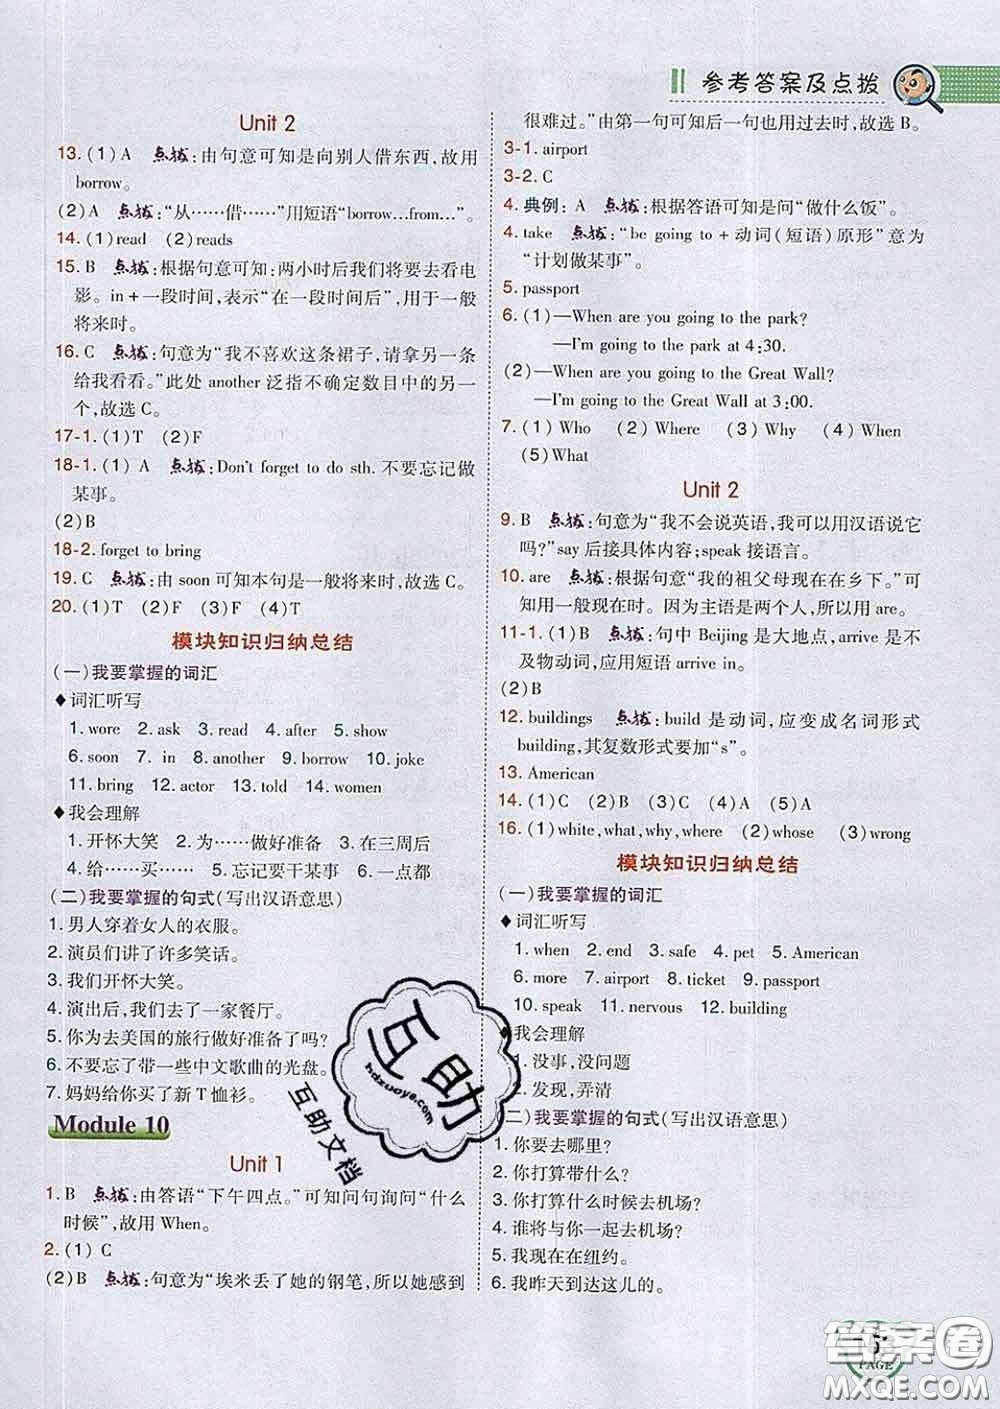 参考答案及点拨
Unit 2
13. (1) A 点拨:由句意可知是向别人借东西,故用
borrow.
(2) A 点拨:“从……借……”用短语“borrow…from…”。
14. (1) read (2) reads
15. B 点拨:根据句意可知:两小时后我们将要去看电
影。in+一段时间,表示“在一段时间后”,用于一般
将来时。
16. C 点拨:句意为“我不喜欢这条裙子,请拿另一条
给我看看。”此处 another 泛指不确定数目中的另一
个,故选 C。
17-1. (1) T (2) F
18-1. (1) A 点拨:Don't forget to do sth. 不要忘记做
某事。
(2) B
18-2. forget to bring
19. C 点拨:由 soon 可知本句是一般将来时,故选 C。
20. (1) T (2) F (3) F (4) T
模块知识归纳总结
(一)我要掌握的词汇
◆词汇听写
1. wore 2. ask 3. read 4. after 5. show
6. soon 7. in 8. another 9. borrow 10. joke
11. bring 12. actor 13. told 14. women
◆我会理解
1. 开怀大笑 2. 为……做好准备 3. 在三周后
4. 给……买…… 5. 忘记要干某事 6. 一点都
(二)我要掌握的句式(写出汉语意思)
1. 男人穿着女人的衣服。
2. 演员们讲了许多笑话。
3. 我们开怀大笑。
4. 演出后,我们去了一家餐厅。
5. 你为去美国的旅行做好准备了吗?
6. 不要忘了带一些中文歌曲的光盘。
7. 妈妈给你买了新T恤衫。
Module 10
Unit 1
1. B 点拨:由答语“下午四点。”可知问句询问“什么
时候”,故用 When。
2. (1) C
(2) B 点拨:句意为“埃米丢了她的钢笔,所以她感到
很难过。”由第一句可知后一句也用过去时,故选 B。
3-1. airport
3-2. C
4. 典例: A 点拨:根据答语可知是问“做什么饭”。
4. take 点拨:“be going to+动词(短语)原形”意为
“计划做某事”。
5. passport
6. (1)—When are you going to the park?
—I'm going to the park at 4:30.
(2)—When are you going to the Great Wall?
—I'm going to the Great Wall at 3:00.
7. (1) Who (2) Where (3) Why (4) When
(5) What
Unit 2
9. B 点拨:句意为“我不会说英语,我可以用汉语说它
吗?”say 后接具体内容;speak 接语言。
10. are 点拨:根据句意“我的祖父母现在在乡下。”可
知用一般现在时。因为主语是两个人,所以用 are。
11-1. (1) B 点拨:句中 Beijing 是大地点,arrive 是不
及物动词,应用短语 arrive in。
(2) B
12. buildings 点拨:build 是动词,应变成名词形式
building,其复数形式要加“s”。
13. American
14. (1) C (2) B (3) C (4) A (5) A
16. (1) white, what, why, where (2) whose (3) wrong
模块知识归纳总结
(一)我要掌握的词汇
◆词汇听写
1. when 2. end 3. safe 4. pet 5. American
6. more 7. airport 8. ticket 9. passport
10. speak 11. nervous 12. building
◆我会理解
1. 没事,没问题
2. 发现,弄清
(二)我要掌握的句式(写出汉语意思)
1. 你要去哪里?
2. 你打算带什么?
3. 你打算什么时候去机场?
4. 谁将与你一起去机场?
5. 我现在在纽约。
6. 我昨天到达这儿的。
互助
hdzuoye.com
互助文档
5
PAGE
答案圈
MXQE.COM